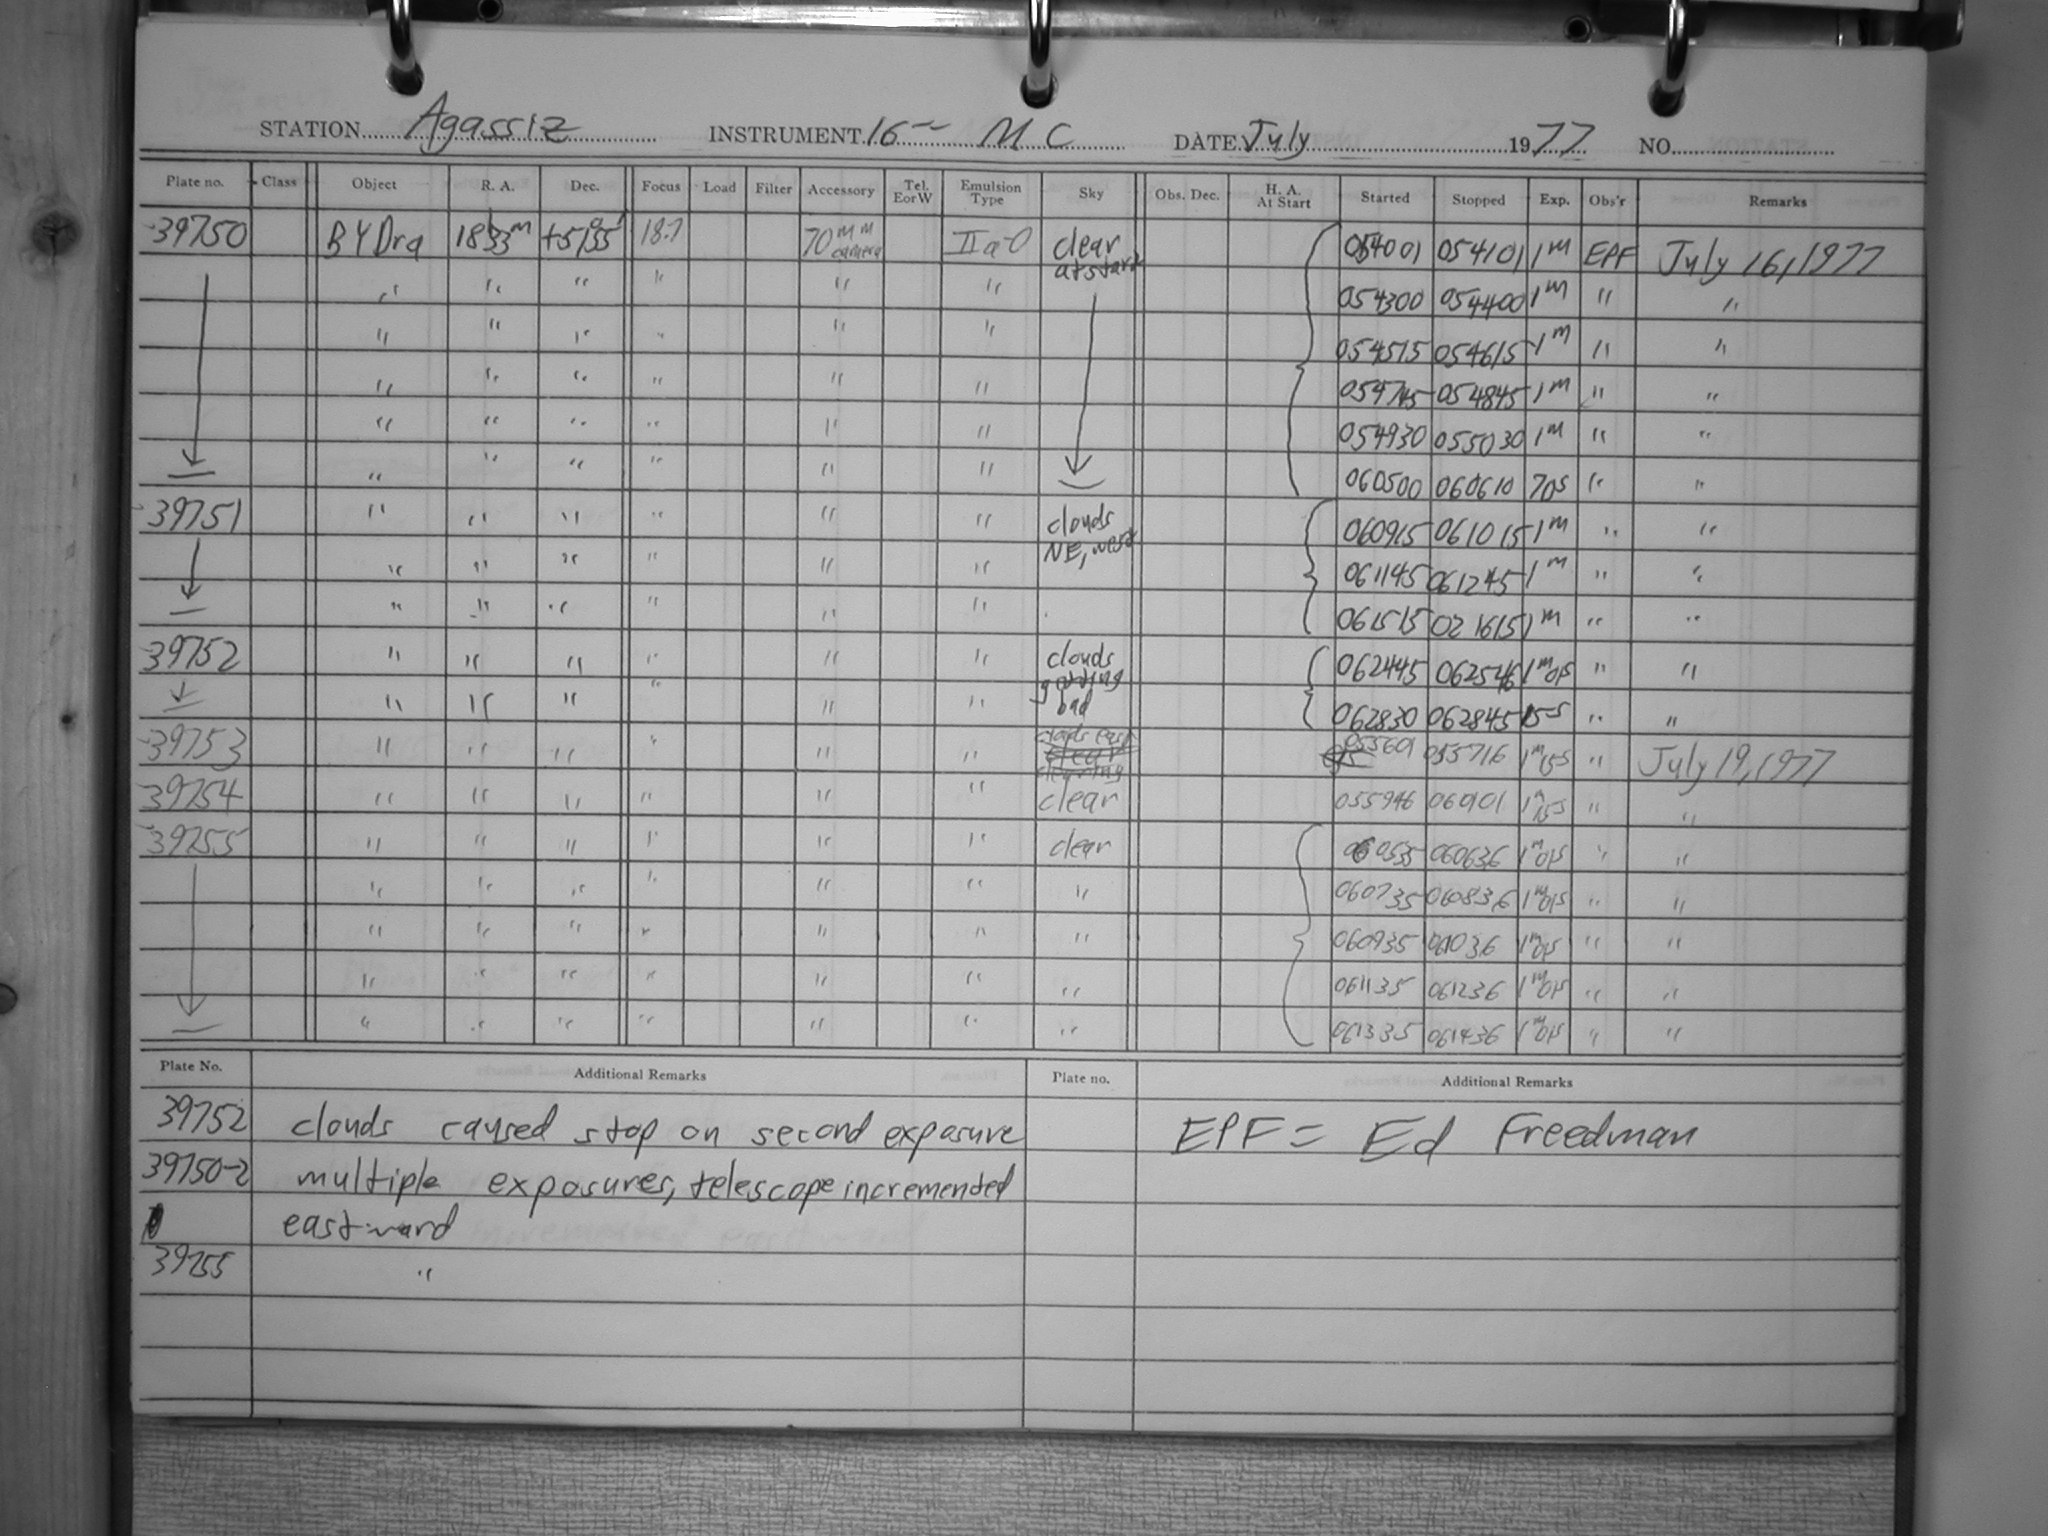 STATION Agassiz INSTRUMENT 16" MC DATE July 1977 NO.
Plate no. Class Object R. A. Dec. Focus Load Filter Accessory Tel. EorW Emulsion Type Sky Obs. Dec. H. A. At Start Started Stopped Exp. Obs'r Remarks
39750 BY Dra 18h33m +51°55' 18.7 70mm camera IIa-O clear at start 054001 054101 1m EPF July 16, 1977
" " " " " " 054300 054400 1m " "
" " " " " " 054515 054615 1m " "
" " " " " " 054745 054845 1m " "
" " " " " " 054930 055030 1m " "
" " " " " " 060500 060610 70s " "
39751 " " " " " " clouds NE, west 060915 061015 1m " "
" " " " " " 061145 061245 1m " "
" " " " " " 061515 021615 1m " "
39752 " " " " " " clouds getting bad 062445 062546 1m01s " "
" " " " " " 062830 062845 15s " "
39753 " " " " " " clouds east clearing 055601 055716 1m15s " July 19, 1977
39754 " " " " " " clear 055946 060101 1m15s " "
39755 " " " " " " clear 060535 060636 1m01s " "
" " " " " " " 060735 060836 1m01s " "
" " " " " " " 060935 061036 1m01s " "
" " " " " " " 061135 061236 1m01s " "
" " " " " " " 061335 061436 1m01s " "
Plate No. Additional Remarks Plate no. Additional Remarks
39752 clouds caused stop on second exposure EPF = Ed Freedman
39750-2 multiple exposures, telescope incremented
eastward
39755 "